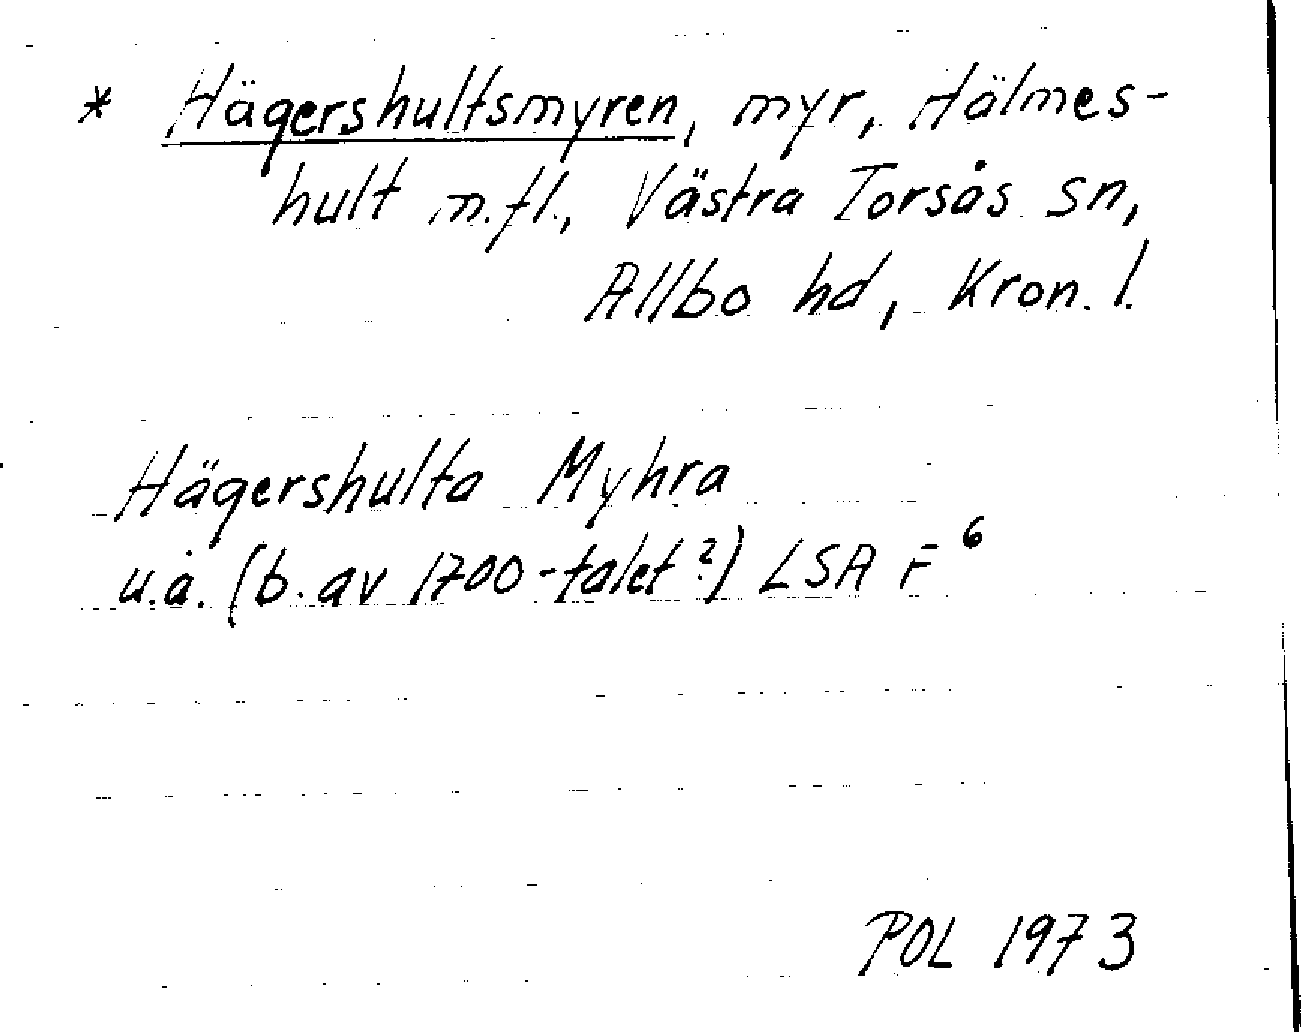 * Hägershultsmyren, myr, Hälmes-
hult m.fl., Västra Torsås sn,
Allbo hd, Kron. l.
Hägershulta Myhra
u.å. (b. av 1700-talet?) LSA F⁶
POL 1973